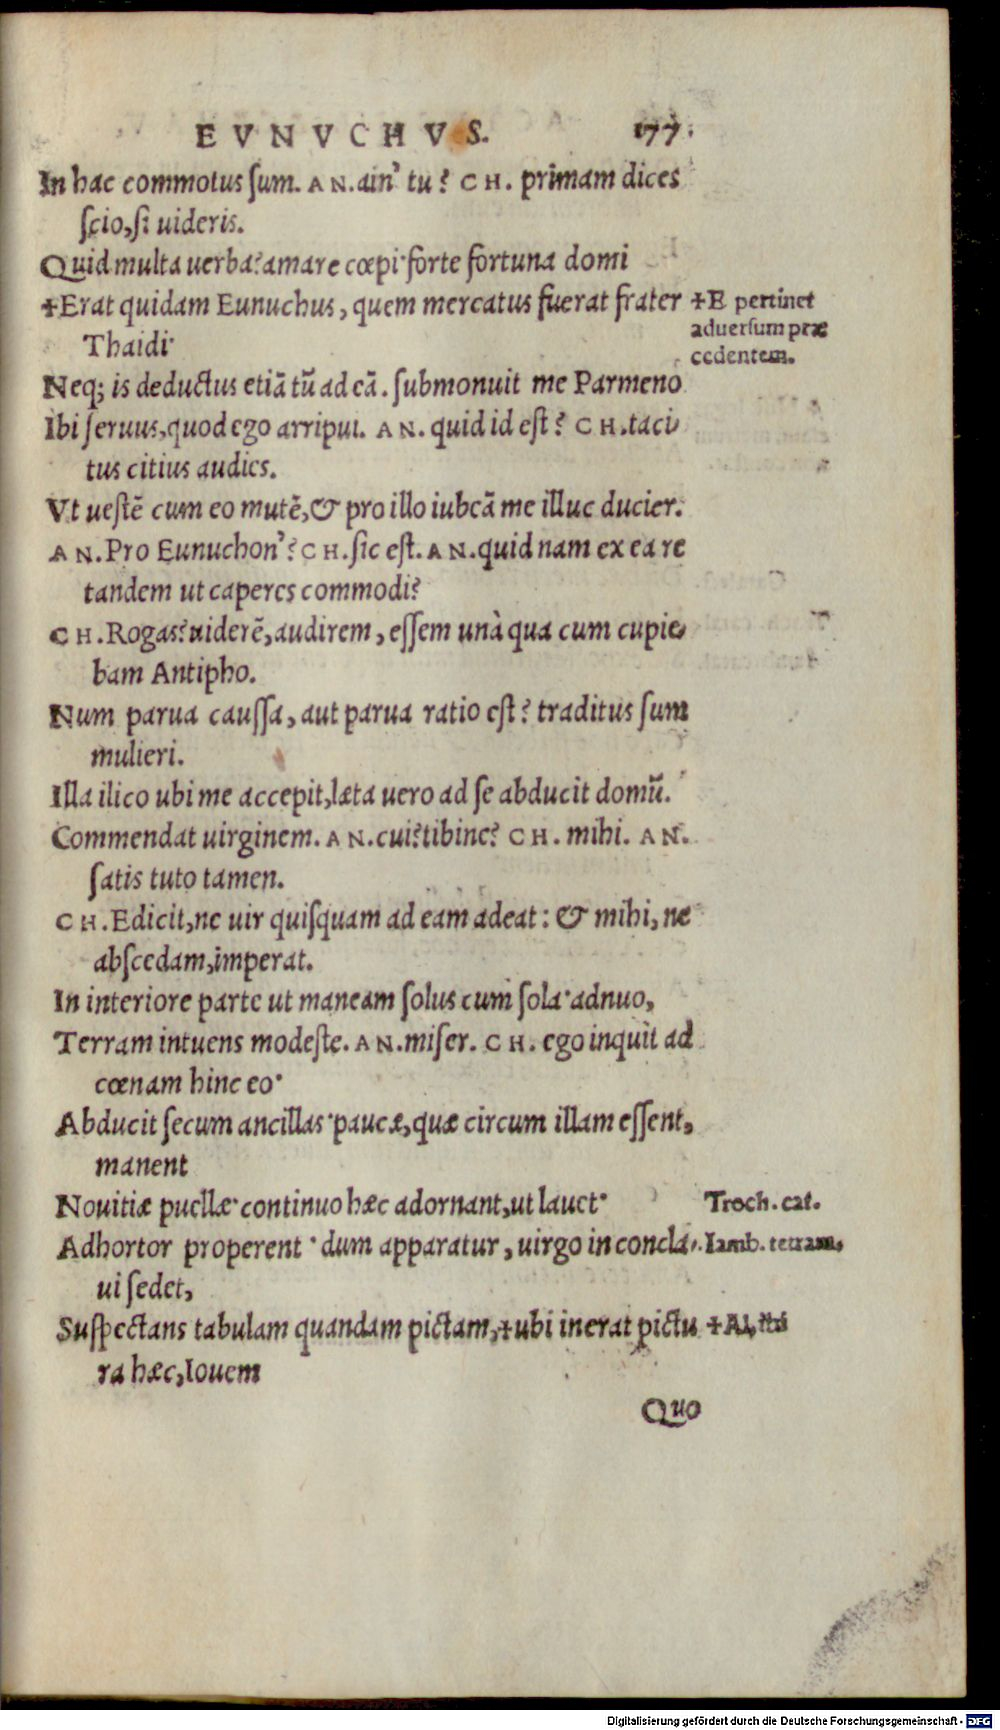 EVNVCHVS. 177.
In hac commotus sum. AN. ain' tu? CH. primam dices
scio, si uideris.
Quid multa uerba? amare cœpi· forte fortuna domi
+Erat quidam Eunuchus, quem mercatus fuerat frater
Thaidi·
+E pertinet
aduersum præ
cedentem.
Neq; is deductus etiā tū ad eā. submonuit me Parmeno
Ibi seruus, quod ego arripui. AN. quid id est? CH. taci
tus citius audies.
Vt uestē cum eo mutē, & pro illo iubeā me illuc ducier.
AN. Pro Eunuchon'? CH. sic est. AN. quid nam ex ea re
tandem ut caperes commodi?
CH. Rogas? uiderē, audirem, essem unà qua cum cupie
bam Antipho.
Num parua caussa, aut parua ratio est? traditus sum
mulieri.
Illa ilico ubi me accepit, læta uero ad se abducit domū.
Commendat uirginem. AN. cui? tibine? CH. mihi. AN.
satis tuto tamen.
CH. Edicit, ne uir quisquam ad eam adeat: & mihi, ne
abscedam, imperat.
In interiore parte ut maneam solus cum sola· adnuo,
Terram intuens modeste. AN. miser. CH. ego inquit ad
cœnam hinc eo·
Abducit secum ancillas· paucæ, quæ circum illam essent,
manent
Nouitiæ puellæ· continuo hæc adornant, ut lauet· Troch. cat.
Adhortor properent· dum apparatur, uirgo in concla Iamb. tetram.
ui sedet,
Suspectans tabulam quandam pictam, +ubi inerat pictu +Al,
ra hæc, Iouem
Quo
Digitalisierung gefördert durch die Deutsche Forschungsgemeinschaft - DFG